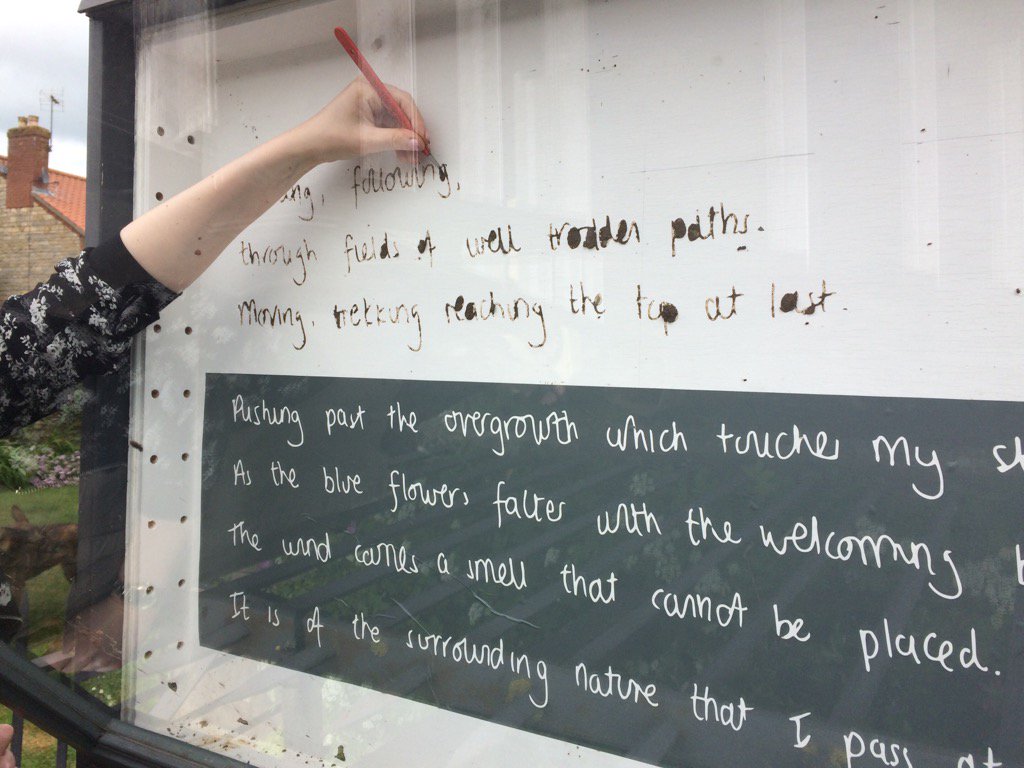 following,
through fields of well trodden paths.
Moving, trekking reaching the top at last.
Pushing past the overgrowth which touches my
As the blue flowers falter with the welcoming
The wind carries a smell that cannot be placed.
It is of the surrounding nature that I pass at